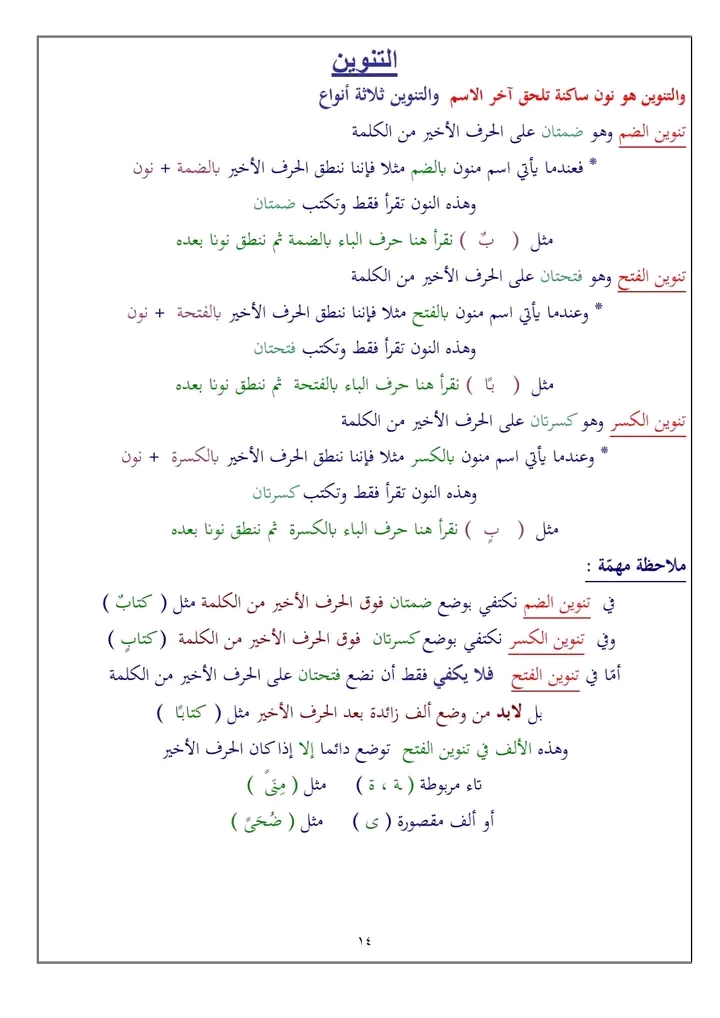 التنوين
والتنوين هو نون ساكنة تلحق آخر الاسم والتنوين ثلاثة أنواع
تنوين الضم وهو ضمتان على الحرف الأخير من الكلمة
* فعندما يأتي اسم منون بالضم مثلا فإننا ننطق الحرف الأخير بالضمة + نون
وهذه النون تقرأ فقط وتكتب ضمتان
مثل ( بٌ ) نقرأ هنا حرف الباء بالضمة ثم ننطق نونا بعده
تنوين الفتح وهو فتحتان على الحرف الأخير من الكلمة
* وعندما يأتي اسم منون بالفتح مثلا فإننا ننطق الحرف الأخير بالفتحة + نون
وهذه النون تقرأ فقط وتكتب فتحتان
مثل ( بًا ) نقرأ هنا حرف الباء بالفتحة ثم ننطق نونا بعده
تنوين الكسر وهو كسرتان على الحرف الأخير من الكلمة
* وعندما يأتي اسم منون بالكسر مثلا فإننا ننطق الحرف الأخير بالكسرة + نون
وهذه النون تقرأ فقط وتكتب كسرتان
مثل ( بٍ ) نقرأ هنا حرف الباء بالكسرة ثم ننطق نونا بعده
ملاحظة مهمّة :
في تنوين الضم نكتفي بوضع ضمتان فوق الحرف الأخير من الكلمة مثل ( كتابٌ )
وفي تنوين الكسر نكتفي بوضع كسرتان فوق الحرف الأخير من الكلمة ( كتابٍ )
أمّا في تنوين الفتح فلا يكفي فقط أن نضع فتحتان على الحرف الأخير من الكلمة
بل لابد من وضع ألف زائدة بعد الحرف الأخير مثل ( كتابًا )
وهذه الألف في تنوين الفتح توضع دائما إلا إذا كان الحرف الأخير
تاء مربوطة ( ـة ، ة ) مثل ( مِنَىً )
أو ألف مقصورة ( ى ) مثل ( ضُحَىً )
١٤